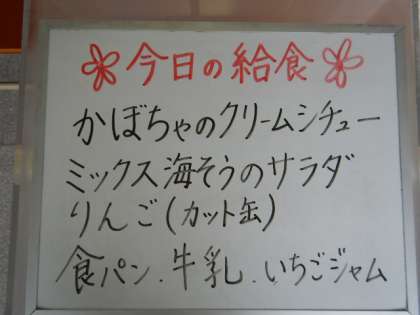 今日の給食
かぼちゃのクリームシチュー
ミックス海そうのサラダ
りんご(カット缶)
食パン.牛乳.いちごジャム